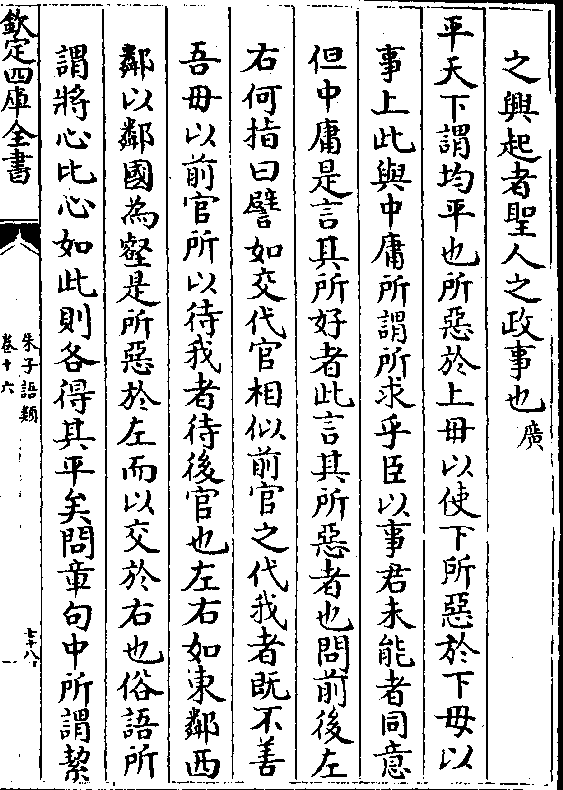 之興起者聖人之政事也廣
平天下謂均平也所惡於上毋以使下所惡於下毋以
事上此與中庸所謂所求乎臣以事君未能者同意
但中庸是言其所好者此言其所惡者也問前後左
右何指曰譬如交代官相似前官之代我者既不善
吾毋以前官所以待我者待後官也左右如東鄰西
鄰以鄰國為壑是所惡於左而以交於右也俗語所
謂將心比心如此則各得其平矣問章句中所謂絜
欽定四庫全書
朱子語類
卷十六
七十八